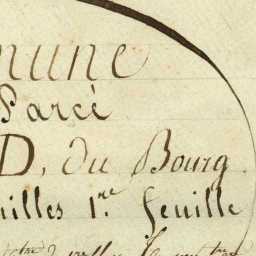 mune
Parcé
D, du Bourg
uilles 1.re feuille